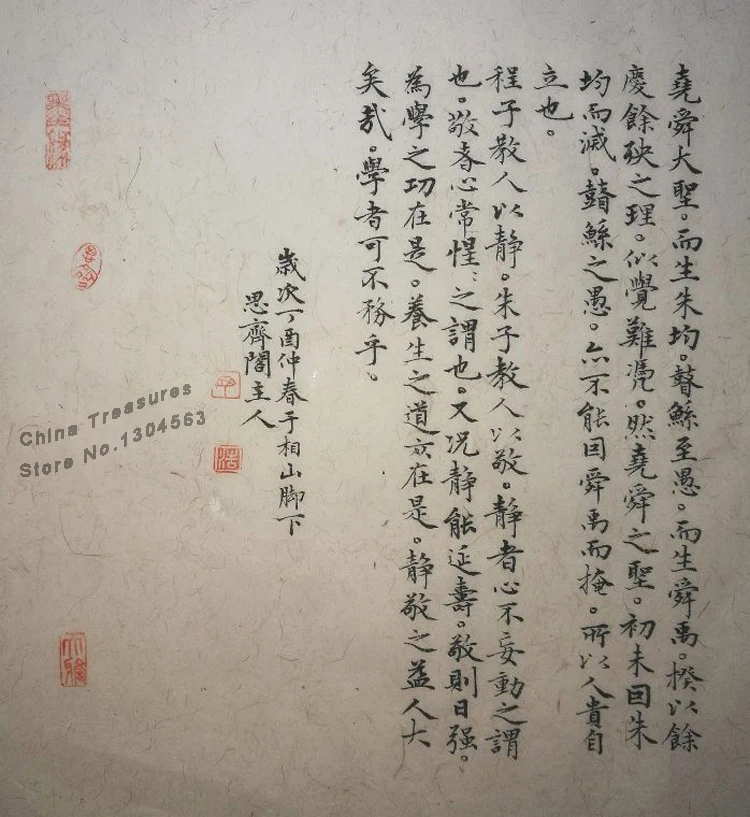 堯舜大聖。而生朱均。瞽鯀至愚。而生舜禹。揆以餘
慶餘殃之理。似覺難憑。然堯舜之聖。初未因朱
均而滅。瞽鯀之愚。亦不能因舜禹而掩。所以人貴自
立也。
程子教人以静。朱子教人以敬。静者心不妄動之謂
也。敬者心常惺﹕之謂也。又况静能延壽。敬則日强。
為學之功在是。養生之道亦在是。静敬之益人大
矣哉。學者可不務乎。
歲次丁酉仲春于相山脚下
思齊閣主人
China Treasures
Store No.1304563